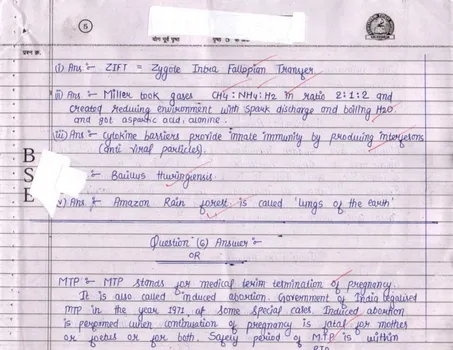 5
योग पूर्व पृष्ठ
पृष्ठ 5 के अंक
प्रश्न क्र.
(i) Ans :- ZIFT = Zygote Intra Fallopian Transfer
(ii) Ans :- Miller took gases CH4 : NH4 : H2 in ratio 2:1:2 and
created reducing environment with spark discharge and boiling H2O
and got aspartic acid, alanine.
(iii) Ans :- Cytokine barriers provide innate immunity by producing interferons
(anti viral particles).
B
S
E
:- Bacillus thuringiensis
v) Ans :- Amazon Rain forest is called 'lungs of the earth'
Question (6) Answer :-
OR
MTP :- MTP stands for medical termi termination of pregnancy.
It is also called induced abortion. Government of India legalised
MTP in the year 1971 at some special cases. Induced abortion
is performed when continuation of pregnancy is fatal for mother
or foetus or for both. Safely period of M.T.P. is within